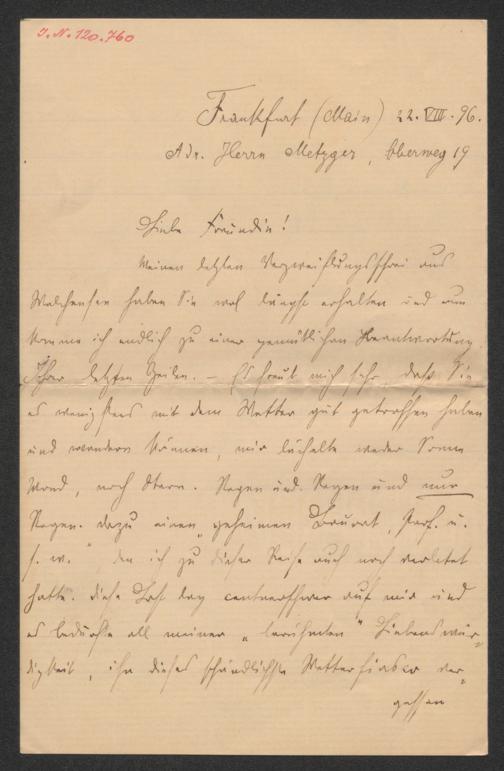 J. N. 120.760
Frankfurt (Main) 22. VIII. 96.
Adr. Herrn Metzger, Oberweg 19
Liebe Freundin!
Meinen letzten Verzweiflungsschrei aus
Walchensee haben Sie wol längst erhalten und nun
komme ich endlich zu einer gemütlichen Beantwortung
Ihrer letzten Zeilen. – Es freut mich sehr, daß Sie
es wenigstens mit dem Wetter gut getroffen haben
und wandern können, mir lächelte weder Sonne
Mond, noch Stern. Regen und Regen und nur
Regen. dazu einen „geheimen Baurat, Prof. u.
s. w.", den ich zu dieser Reise auch noch verleitet
hatte. diese Last lag centnerschwer auf mir und
es bedurfte all meiner „berühmten" Liebenswür-
digkeit, ihn dieses schändlichste Wetterfiasco ver-
gessen